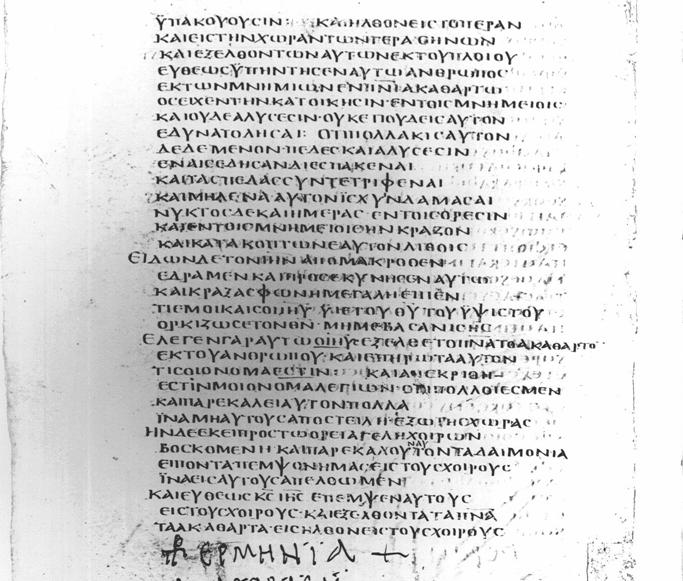 ΫΠΑΚΟΥΟΥCΙΝ: ΚΑΙΗΛΘΟΝΕΙCΤΟΠΕΡΑΝ
ΚΑΙΕΙCΤΗΝΧΩΡΑΝΤΩΝΓΕΡΑCΗΝΩΝ
ΚΑΙΕΞΕΛΘΟΝΤΩΝΑΥΤΩΝΕΚΤΟΥΠΛΟΙΟΥ
ΕΥΘΕΩCΫΠΗΝΤΗCΕΝΑΥΤΩΑΝΘΡΩΠΟC
ΕΚΤΩΝΜΝΗΜΙΩΝΕΝΠ̅Ν̅Ι̅ΑΚΑΘΑΡΤΩ
ΟCΕΙΧΕΝΤΗΝΚΑΤΟΙΚΗCΙΝ·ΕΝΤΟΙCΜΝΗΜΕΙΟΙC
ΚΑΙΟΥΔΕΑΛΥCΕCΙΝ·ΟΥΚΕΤΙΟΥΔΕΙCΑΥΤΟΝ
ΕΔΥΝΑΤΟΔΗCΑΙ: ΟΤΙΠΟΛΛΑΚΙCΑΥΤΟΝ
ΔΕΔΕΜΕΝΟΝΠΕΔΕCΚΑΙΑΛΥCΕCΙΝ
ΕΝΑΙCΕΔΗCΑΝΔΙΕCΠΑΚΕΝΑΙ
ΚΑΙΤΑCΠΕΔΑCCΥΝΤΕΤΡΙΦΕΝΑΙ
ΚΑΙΜΗΔΕΝΑΑΥΤΟΝΪCΧΥΝΔΑΜΑCΑΙ
ΝΥΚΤΟCΔΕΚΑΙΗΜΕΡΑC·ΕΝΤΟΙCΟΡΕCΙΝ
ΚΑΙΕΝΤΟΙCΜΝΗΜΕΙΟΙCΗΝΚΡΑΖΟΝ
ΚΑΙΚΑΤΑΚΟΠΤΩΝΕΑΥΤΟΝΛΙΘΟΙC
ΕΙΔΩΝΔΕΤΟΝΙΗΝΑΠΟΜΑΚΡΟΘΕΝ
ΕΔΡΑΜΕΝΚΑΙΠΡΟCΕΚΥΝΗCΕΝΑΥΤΩ
ΚΑΙΚΡΑΖΑCΦΩΝΗΜΕΓΑΛΗΕΙΠΕΝ
ΤΙΕΜΟΙΚΑΙCΟΙΙΗΥ ΫΙΕΤΟΥΘ̅Υ̅ΤΟΥΫΨΙCΤΟΥ
ΟΡΚΙΖΩCΕΤΟΝΘ̅Ν̅·ΜΗΜΕΒΑCΑΝΙCΗC
ΕΛΕΓΕΝΓΑΡΑΥΤΩΟΙΗC·ΕΞΕΛΘΕΤΟΠΝΑΤΟΑΚΑΘΑΡΤΟ
ΕΚΤΟΥΑΝΘΡΩΠΟΥ·ΚΑΙΕΠΗΡΩΤΑΑΥΤΟΝ
ΤΙCΟΙΟΝΟΜΑΕCΤΙΝ: ΚΑΙΑΠΕΚΡΙΘΗ
ΕCΤΙΝΜΟΙΟΝΟΜΑΛΕΓΙΩΝ·ΟΤΙΠΟΛΛΟΙΕCΜΕΝ
ΚΑΙΠΑΡΕΚΑΛΕΙΑΥΤΟΝΠΟΛΛΑ
ΪΝΑΜΗΑΥΤΟΥCΑΠΟCΤΕΙΛΗ·ΕΞΩΤΗCΧΩΡΑC
ΗΝΔΕΕΚΕΙΠΡΟCΤΩΟΡΕΙΑΓΕΛΗΧΟΙΡΩΝ
ΒΟCΚΟΜΕΝΗ·ΚΑΙΠΑΡΕΚΑΛΟΥΤΟΝΤΑΔΑΙΜΟΝΙΑ
ΕΙΠΟΝΤΑΠΕΜΨΟΝΗΜΑCΕΙCΤΟΥCΧΟΙΡΟΥC
ΪΝΑΕΙCΑΥΤΟΥCΑΠΕΛΘΩΜΕΝ
ΚΑΙΕΥΘΕΩCΚ̅C̅ Ι̅Η̅C̅ ΕΠΕΜΨΕΝΑΥΤΟΥC
ΕΙCΤΟΥCΧΟΙΡΟΥC·ΚΑΙΕΞΕΛΘΟΝΤΑΤΑΠ̅Ν̅Α̅
ΤΑΑΚΑΘΑΡΤΑ·ΕΙCΗΛΘΟΝΕΙCΤΟΥCΧΟΙΡΟΥC
ΕΡΜΗΝΙΑ +